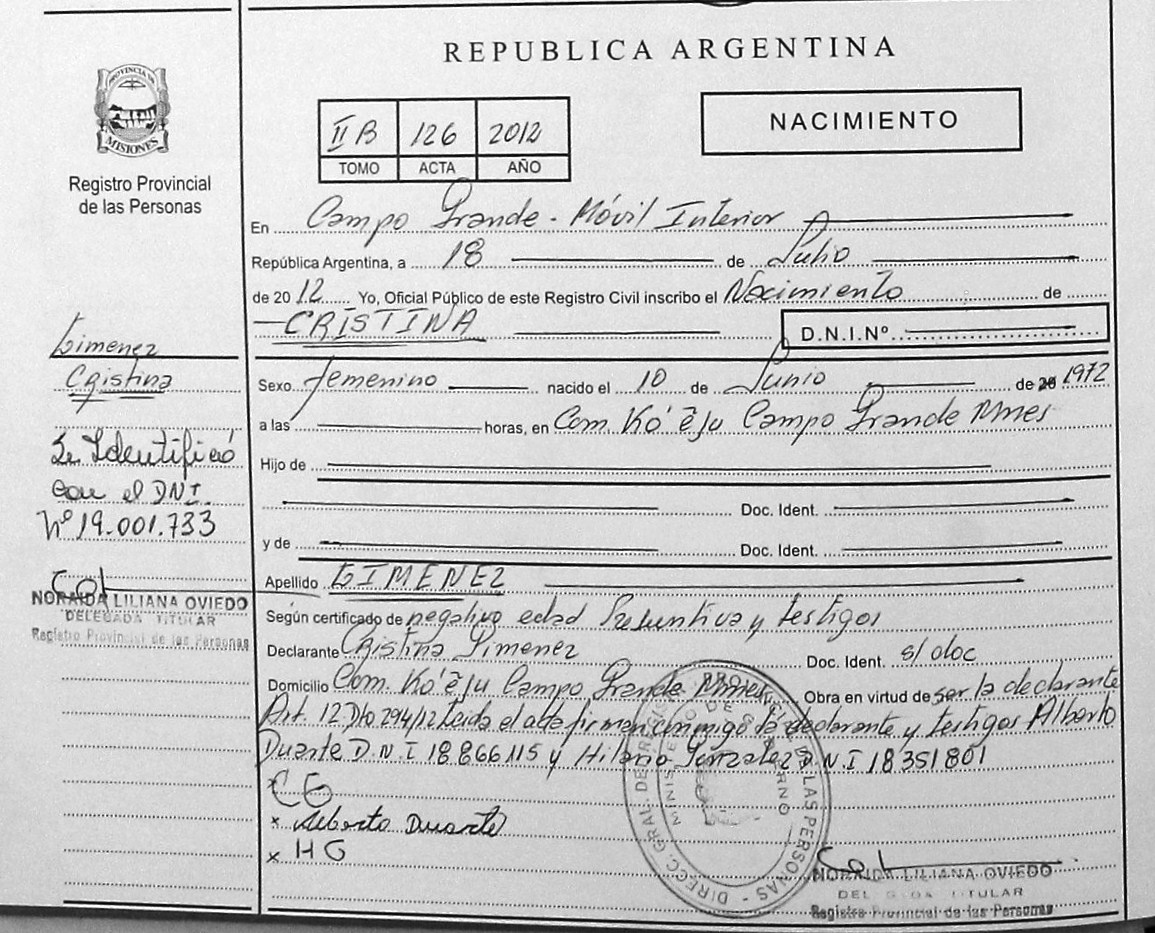 PROVINCIA DE
MISIONES
Registro Provincial
de las Personas
Gimenez
Cristina
Se Identificó
con el DNI
Nº 19.001.733
NORAIDA LILIANA OVIEDO
DELEGADA TITULAR
Registro Provincial de las Personas
REPUBLICA ARGENTINA
II B 126 2012
TOMO ACTA AÑO
NACIMIENTO
En Campo Grande - Móvil Interior
República Argentina, a 18 de Julio
de 2012 Yo, Oficial Público de este Registro Civil inscribo el Nacimiento de
CRISTINA D.N.I.Nº
Sexo femenino nacido el 10 de Junio de 20 1972
a las horas, en Com. Ko'ẽju Campo Grande Mnes
Hijo de
Doc. Ident.
y de Doc. Ident.
Apellido GIMENEZ
Según certificado de negativo edad Presuntiva y testigos
Declarante Cristina Gimenez Doc. Ident. s/ doc
Domicilio Com. Ko'ẽju Campo Grande Mnes Obra en virtud de ser la declarante
Art. 12 Dto. 294/12 Leida el acta firman conmigo la declarante y testigos Alberto
Duarte D.N.I 18.866.115 y Hilario Gonzalez D.N.I 18351801
CG
x Alberto Duarte
x HG
DIRECC. GRAL. DE REGIS. PROVINC. DE LAS PERSONAS
MINISTERIO DE GOBIERNO
NORAIDA LILIANA OVIEDO
DELEGADA TITULAR
Registro Provincial de las Personas